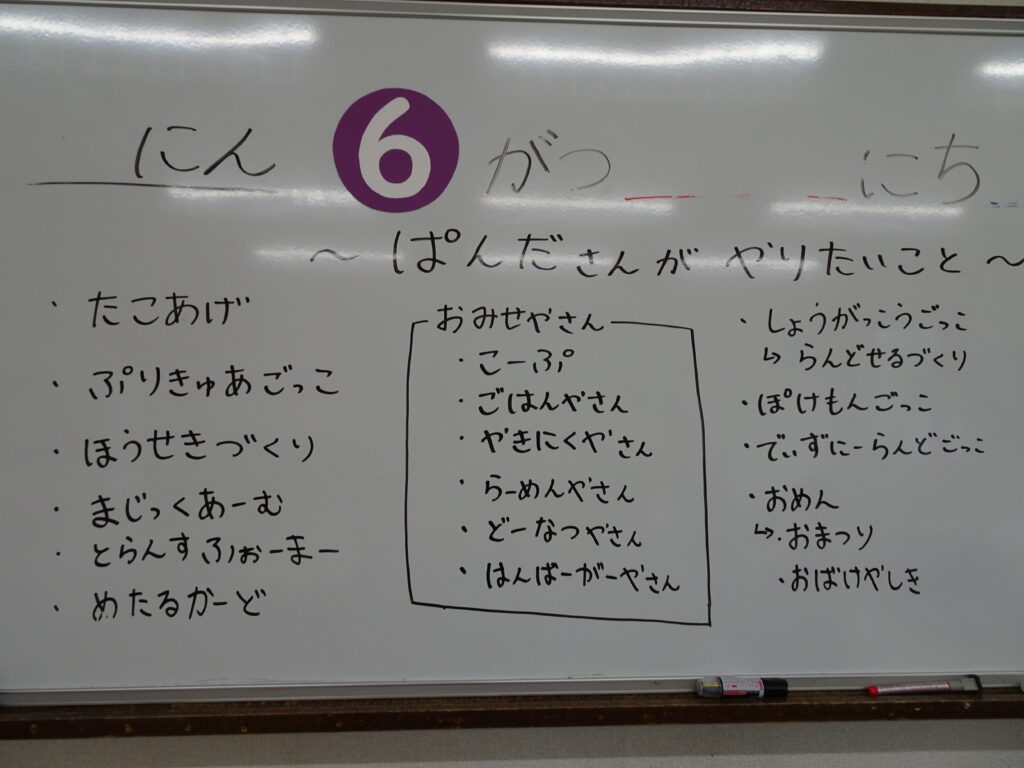 にん 6 がつ にち
～ ぱんださんが やりたいこと ～
・たこあげ
・ぷりきゅあごっこ
・ほうせきづくり
・まじっくあーむ
・とらんすふぉーまー
・めたるかーど
おみせやさん
・こーぷ
・ごはんやさん
・やきにくやさん
・らーめんやさん
・どーなつやさん
・はんばーがーやさん
・しょうがっこうごっこ
↳ らんどせるづくり
・ぽけもんごっこ
・でぃずにーらんどごっこ
・おめん
↳・おまつり
・おばけやしき